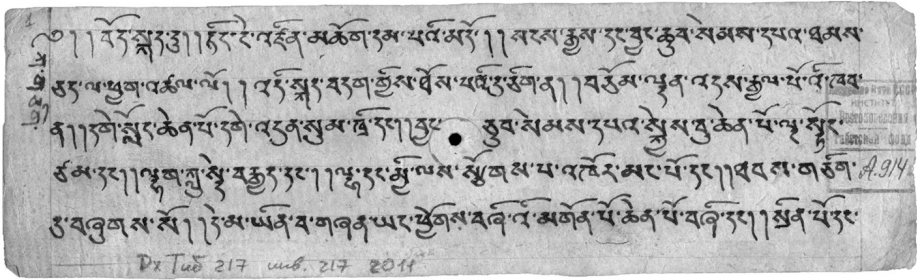 ༄།།བོད་སྐད་དུ།།ཏིང་ངེ་འཛིན་མཆོག་དམ་པའི་མདོ།།སངས་རྒྱས་དང་བྱང་ཆུབ་སེམས་དཔའ་ཐམས་
ཅད་ལ་ཕྱག་འཚལ་ལོ།།འདི་སྐད་བདག་གྱིས་ཐོས་པའི་དུས་ཅིག་ན།།བཅོམ་ལྡན་འདས་རྒྱལ་པོའི་ཁབ་
ན།།དགེ་སློང་ཆེན་པོ་དགེ་འདུན་སུམ་ཁྲི་དང།།བྱང་ཅུབ་སེམས་དཔའ་སྐྱེས་བུ་ཆེན་པོ་ལྔ་སྟོང་
ཙམ་དང།།ལྷག་ཀླུ་སྡེ་བརྒྱད་དང།།ལྷ་དང་མྱི་ལས་སྩོགས་པ་འཁོར་མང་པོ་དང།།ཐབས་གཅིག་
ཏུ་བཞུགས་སོ།།དེ་མ་ཡིན་བ་གཞན་ཡང་ཕྱོགས་བཞི་འི་མགོན་པོ་ཆེན་པོ་བཞི་དང།།སྲིན་པོ་དང་
А.914
Дх Тиб 217 инв. 217 2011